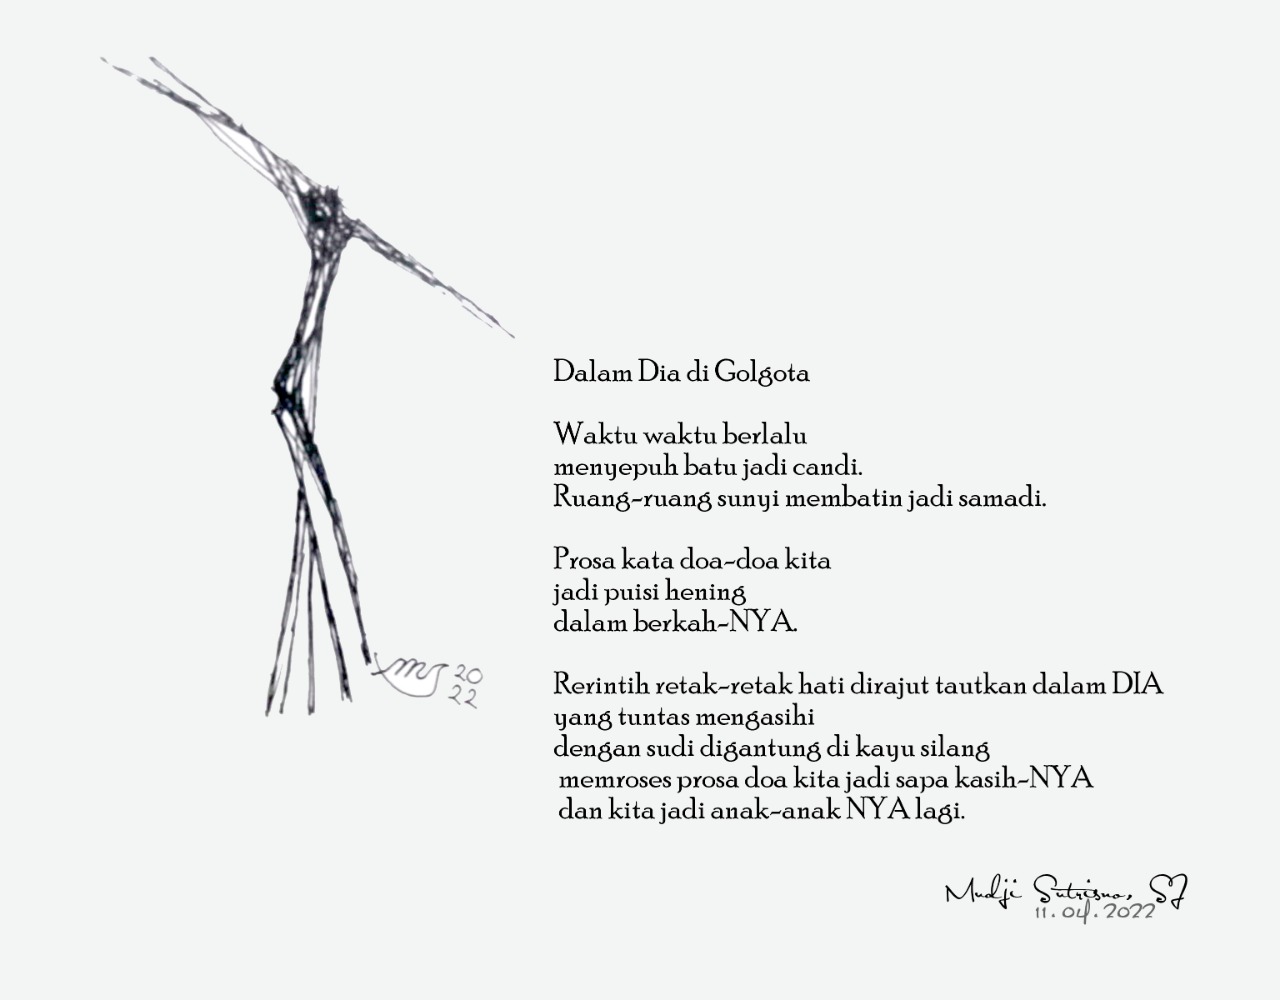 Dalam Dia di Golgota
Waktu waktu berlalu
menyepuh batu jadi candi.
Ruang-ruang sunyi membatin jadi samadi.
Prosa kata doa-doa kita
jadi puisi hening
dalam berkah-NYA.
Rerintih retak-retak hati dirajut tautkan dalam DIA
yang tuntas mengasihi
dengan sudi digantung di kayu silang
memroses prosa doa kita jadi sapa kasih-NYA
dan kita jadi anak-anak NYA lagi.
20
22
Mudji Sutrisno, SJ
11.04.2022